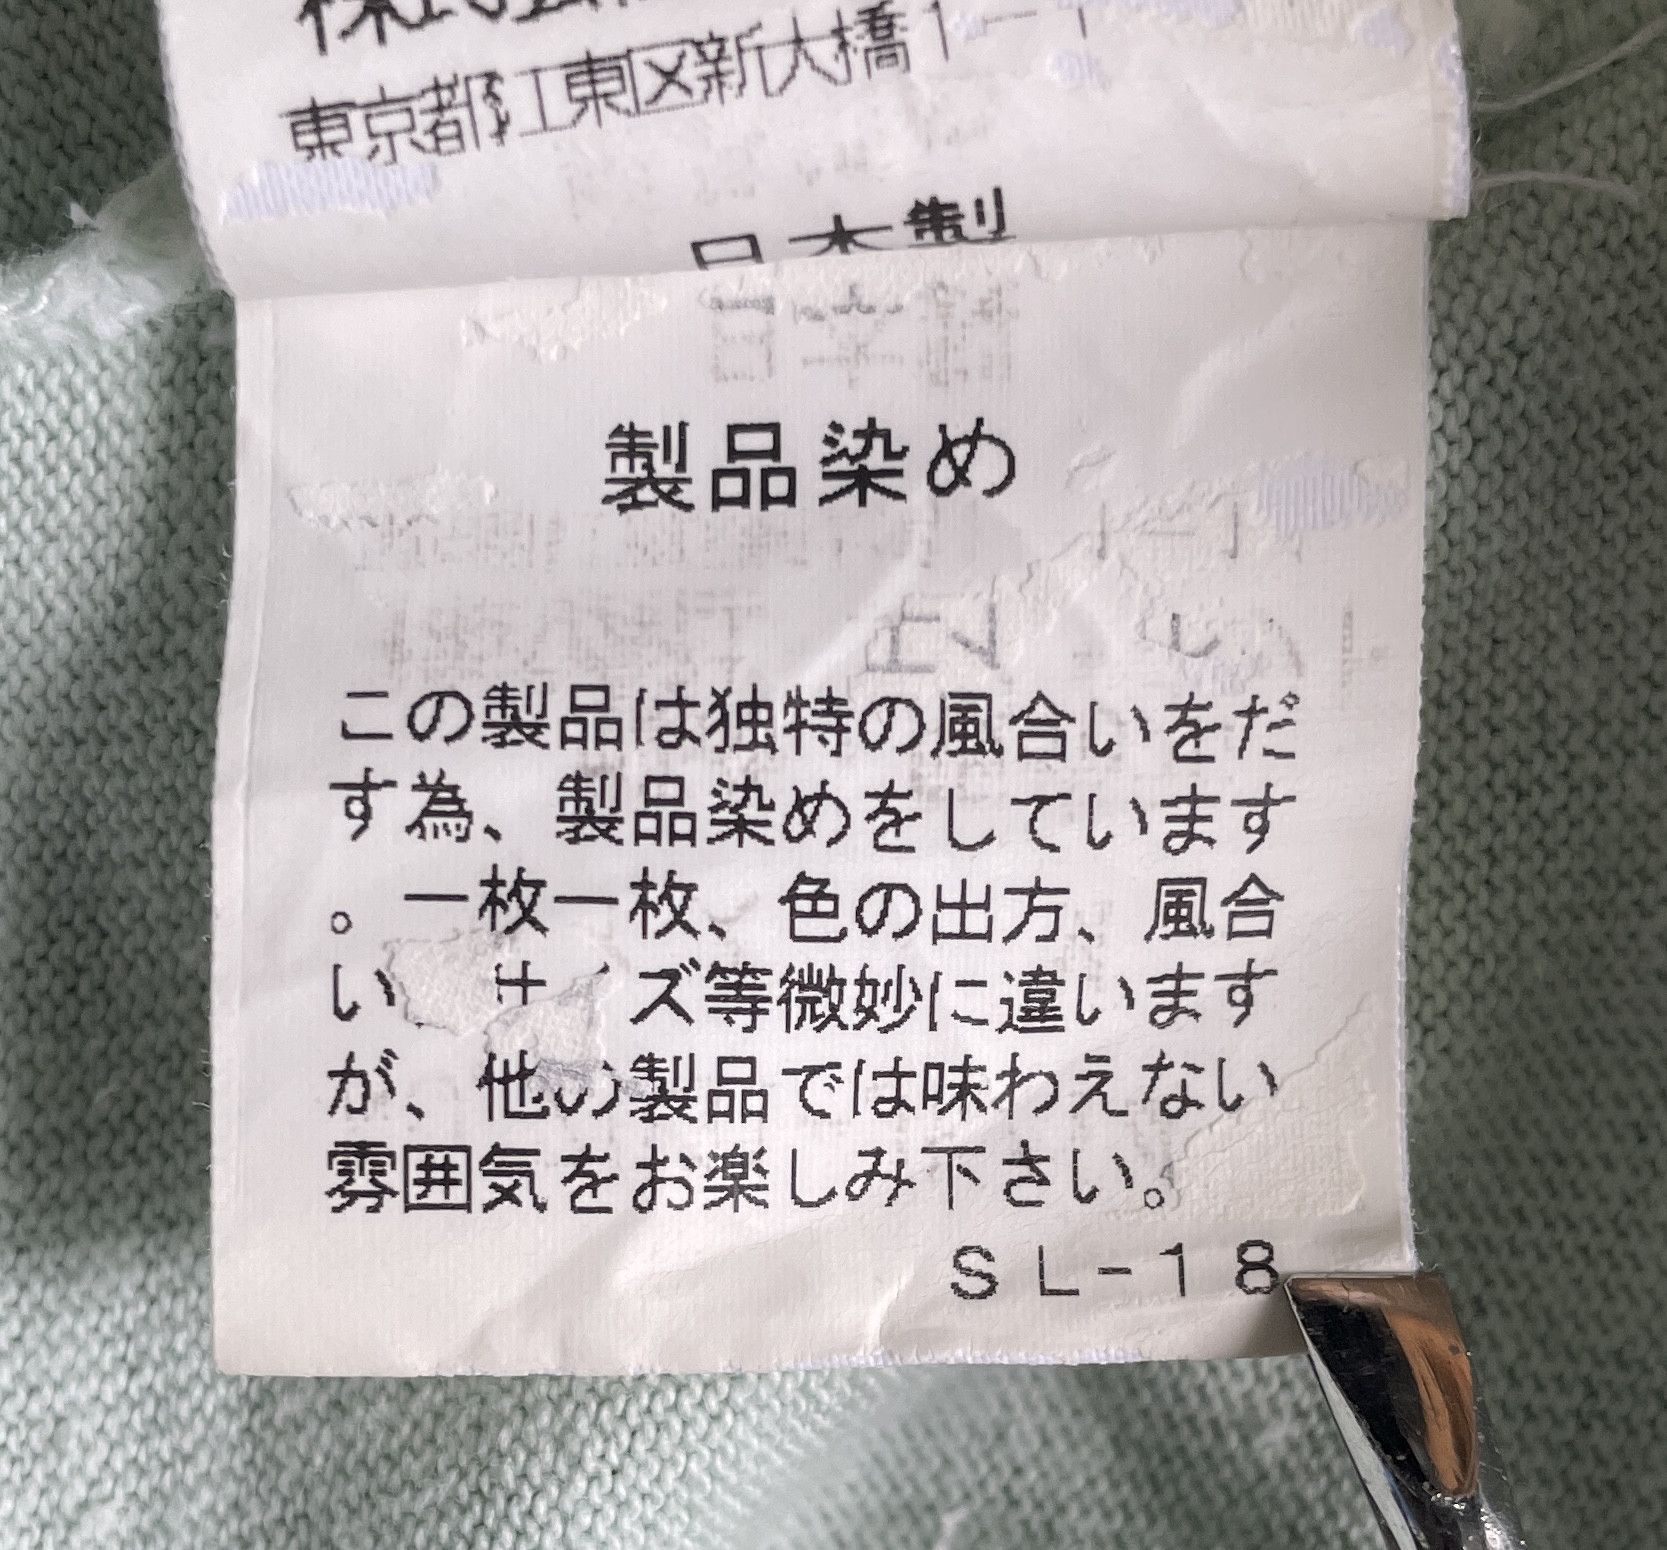 株式会
東京都江東区新大橋1-1
日本製
製品染め
この製品は独特の風合いをだ
す為、製品染めをしています
。一枚一枚、色の出方、風合
い、サイズ等微妙に違います
が、他の製品では味わえない
雰囲気をお楽しみ下さい。
SL-18